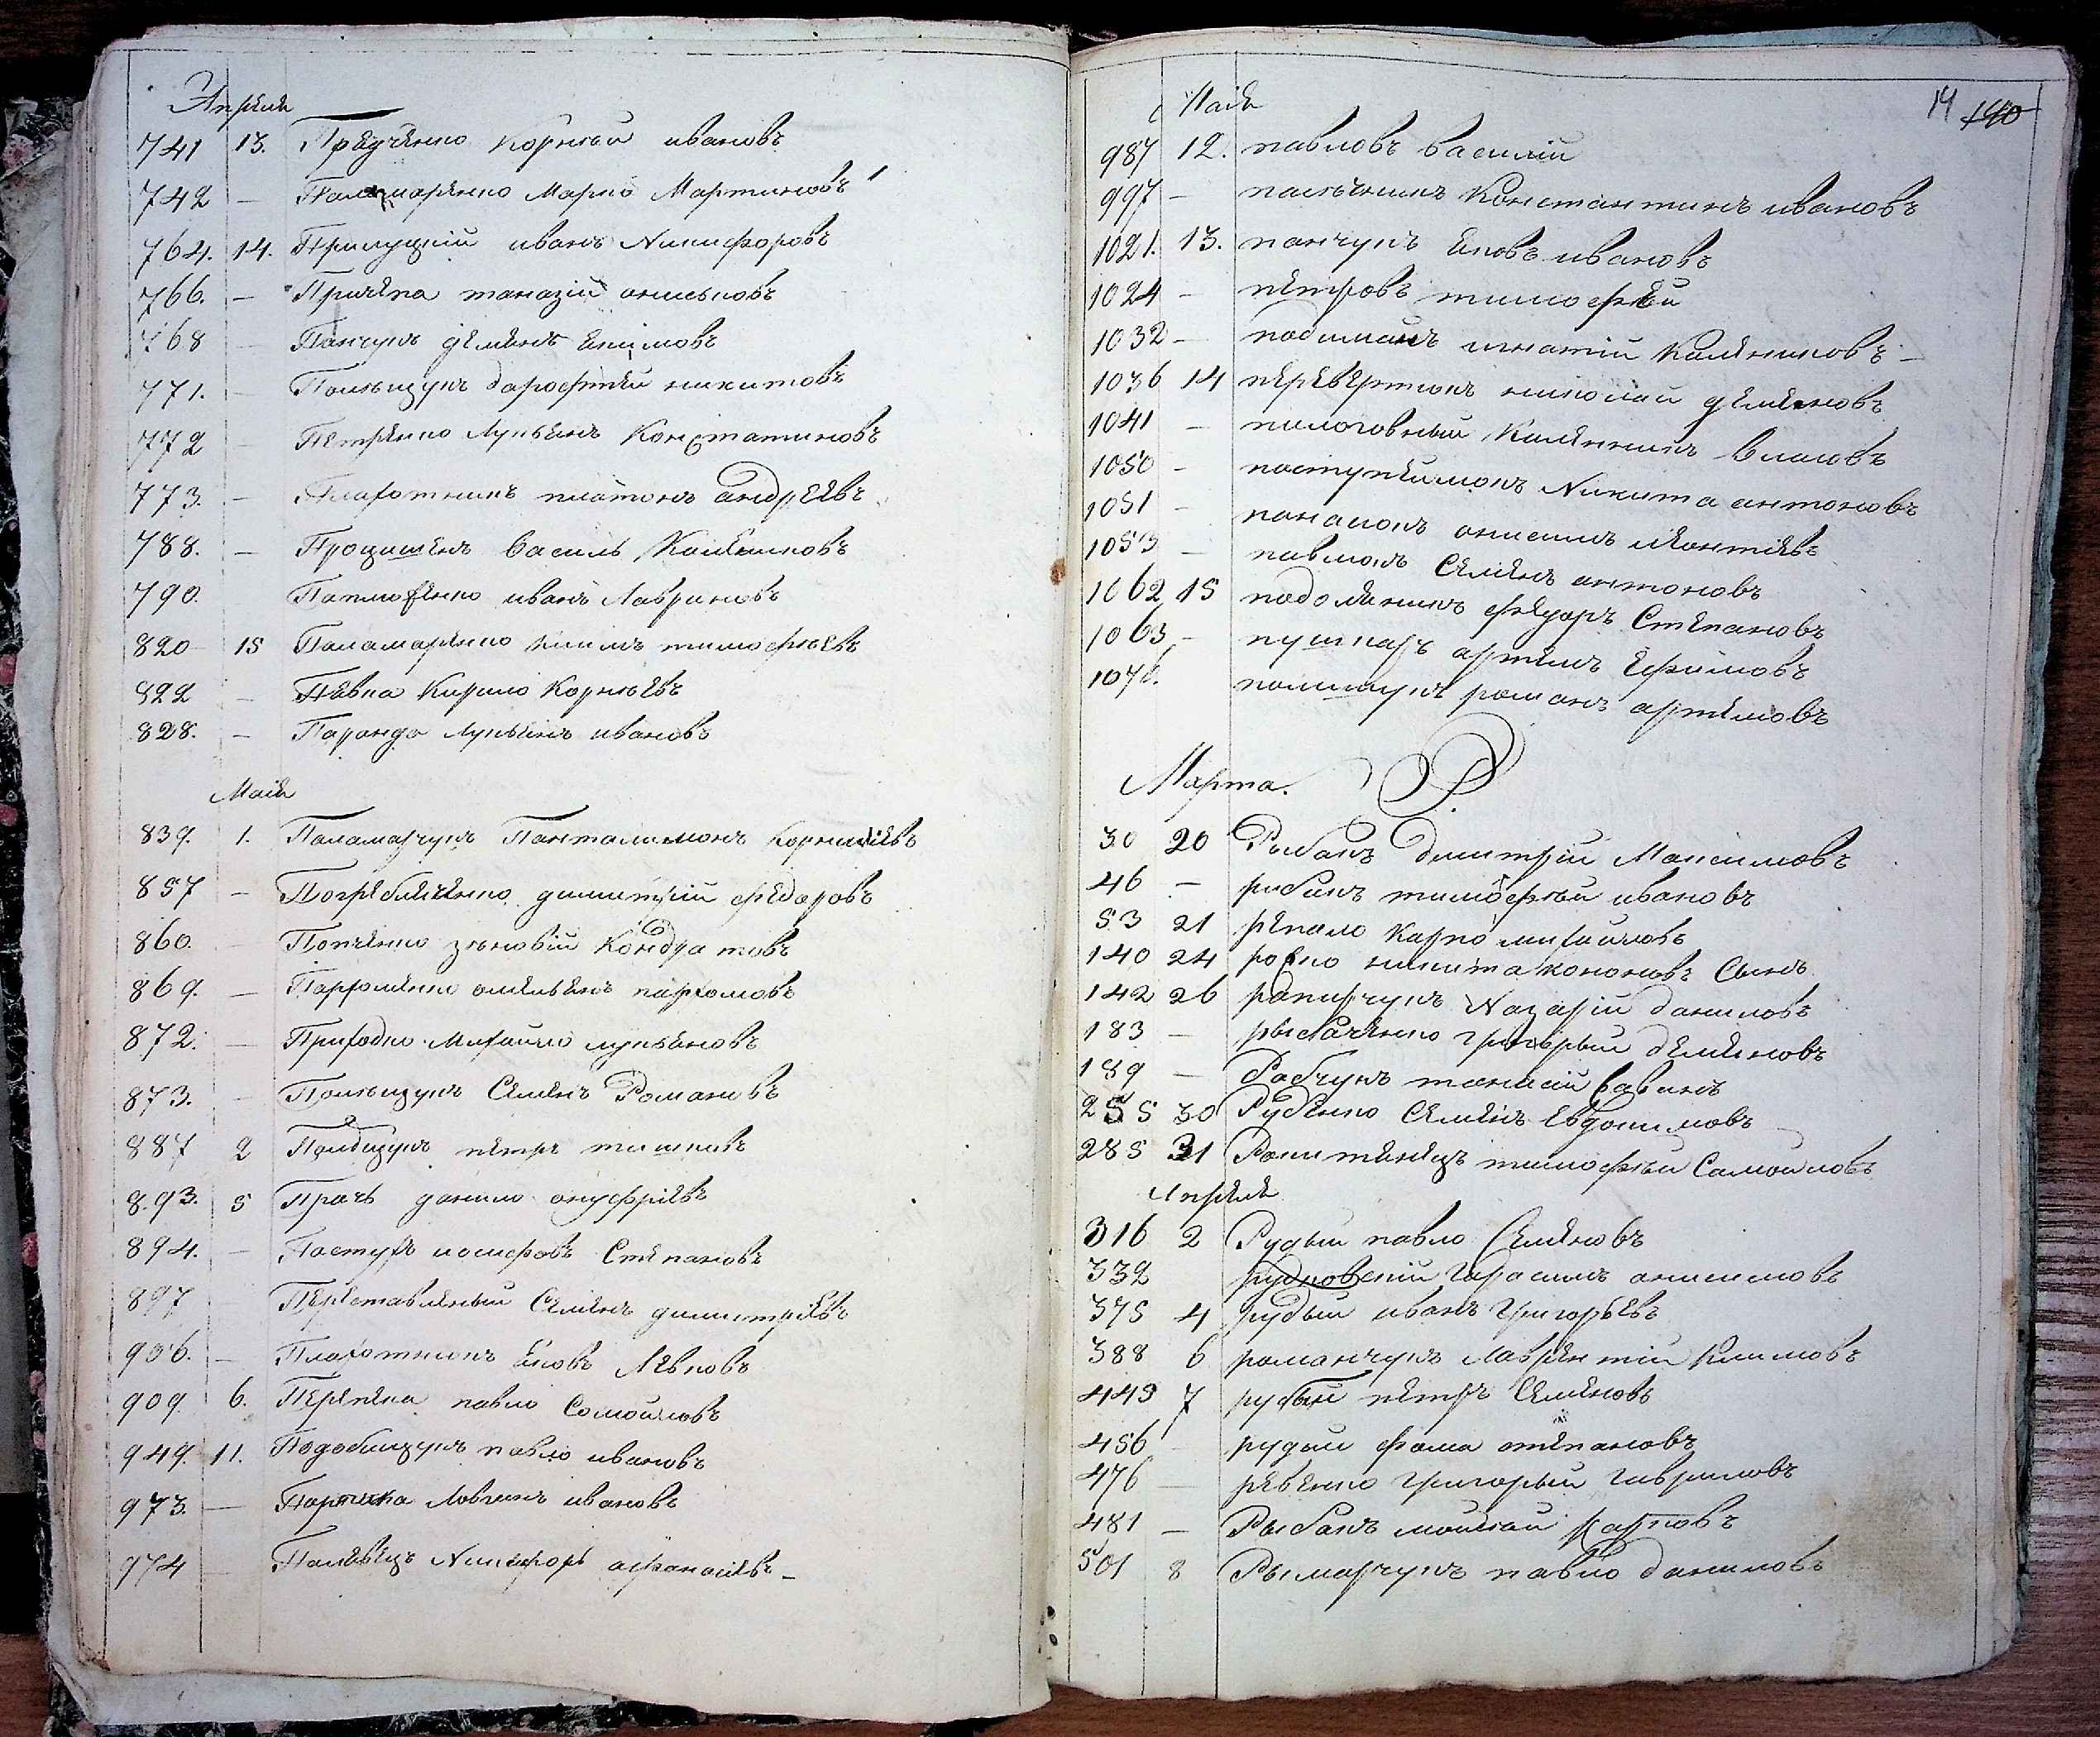 Апреля
741 13. Предченко Корнѣй ивановъ
742 — Паламаренко Марко Мартиновъ
764. 14. Прилуцкій иванъ Никифоровъ
766. — Причепа таназій ониськовъ
768 — Панчукъ демянъ Екимовъ
771. — Полѣщукъ дарофтей никитовъ
772 — Петренко Лукьянъ Констатиновъ
773. — Плахотникъ платонъ андреевъ
788. — Процишенъ василь Калениковъ
790. иванъ Лавриновъ
820 15 Паламаренко климъ тимофѣевъ
822 — Певка Кирило Корнѣевъ
828. — Паранда лукьянъ ивановъ
Маія
839. 1. Паламарчукъ Панталимонъ Корниліевъ
857 — Погребниченко димитрій федоровъ
860. — Попченко зѣновій Кондратовъ
869. — Пархоменко омельянъ пархомовъ
872. — Приходко Михайло лукьяновъ
873. — Полѣщукъ Семенъ Романовъ
887 2 петръ тишковъ
893. 5 Прачъ данило онуфріевъ
894. — Пастухъ иосифовъ Степановъ
897 — Переставленый Семенъ димитріевъ
906. — Плахотнюкъ Яковъ Левковъ
909. 6. Перепека павло Самойловъ
949. 11. Подоблищукъ павло ивановъ
973. — ивановъ
974 — Полевецъ Никифоръ афанасіевъ
14 140
Маія
987 12. павловъ василій
997 — пасѣчникъ Константинъ ивановъ
1021. 13. панчукъ Яковъ ивановъ
1024 — петровъ тимофей
1032 — игнатій Калениковъ
1036 14 перевертнюкъ николай демяновъ
1041 — пологовный Каленикъ Власовъ
1050 — Никита антоновъ
1051 — панасюкъ онисимъ леонтіевъ
1053 — павлюкъ Семенъ антоновъ
1062 15 подоляникъ федоръ Степановъ
1063 — пушкаръ артемъ Ефимовъ
1076. полищукъ романъ артемовъ
Марта. Р.
30 20 Рыбакъ дмитрій Максимовъ
46 — рибакъ тимофѣй ивановъ
53 21 репало Карпо михайловъ
140 24 никита кононовъ Сынъ
142 26 Назарій даниловъ
183 — рыбаченко григорый демяновъ
189 — Рабчукъ танасій Савинъ
255 30 Руденко Семенъ Евдокимовъ
285 31 Ракитянецъ тимофѣй Самойловъ
Апреля
316 2 Рудый павло Семеновъ
332 рудковскій Гарасимъ онисимовъ
375 4 рудый иванъ григорьевъ
388 6 романчукъ Лаврентій климовъ
449 7 рудый петръ Семеновъ
456 — рудый фома степановъ
476 — ревенко григорый гавриловъ
481 — Рыбакъ мойсѣй Карповъ
501 8 Рымарчукъ павло даниловъ